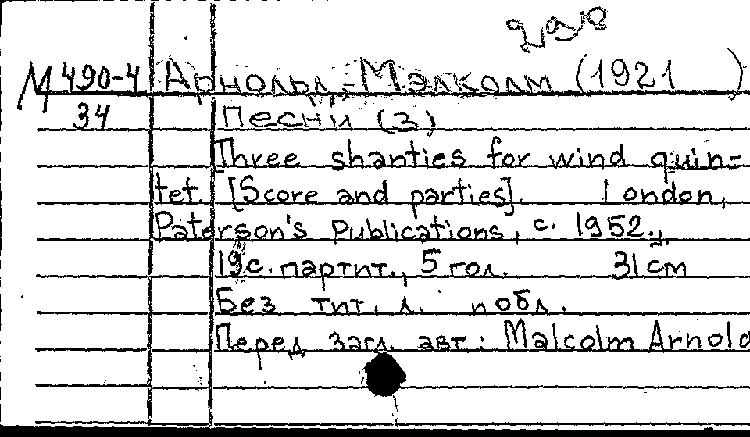 М 490-4 Арнольд, Мэлколм (1921 )
34 Песни (3)
Three shanties for wind quin-
tet. [Score and parties]. London,
Paterson's Publications, c. 1952.,
19с. партит., 5 гол. 31 см
Без тит. л. и обл.
Перед загл. авт.: Malcolm Arnold